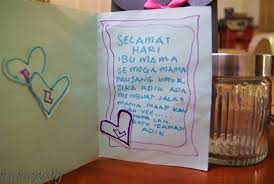 SELAMAT
HARI
IBU MAMA
SEMOGA MAMA
PANJANG UMUR
JIKA ADIK ADA
MEMBUAT SALAH
MAMA MAAF KAN
MAMA LAH
ADIK